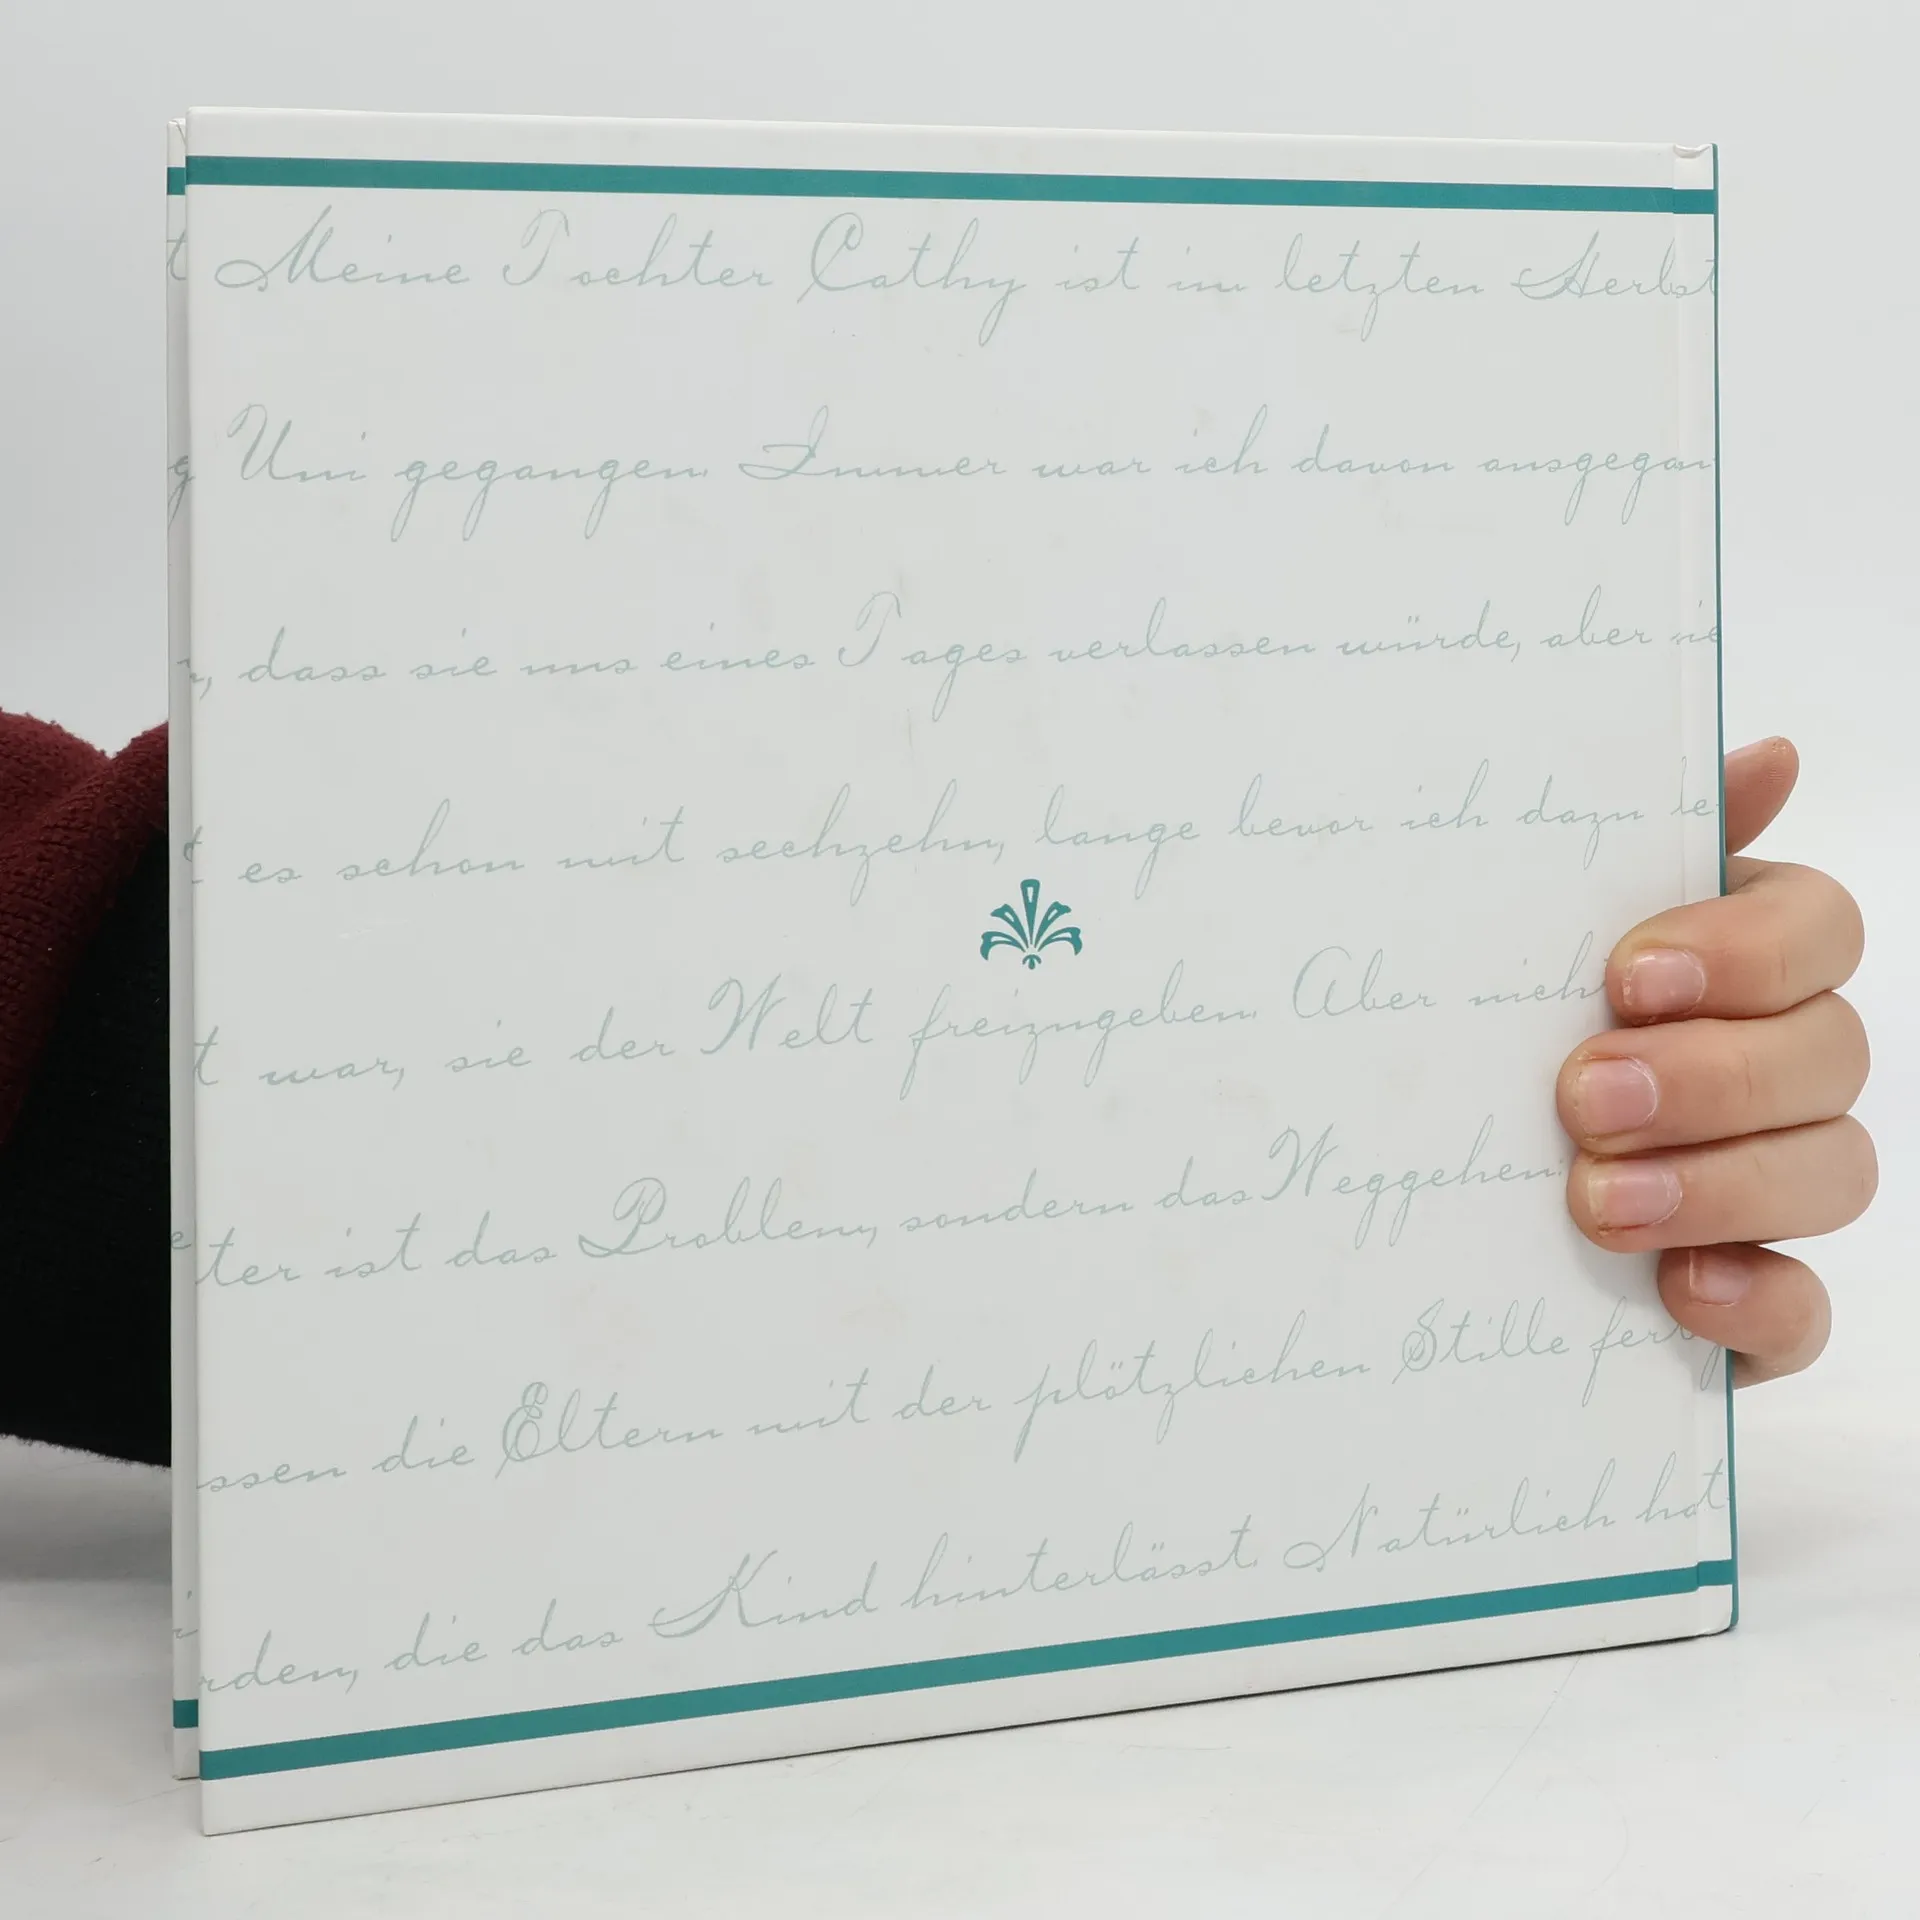 Meine Tochter Cathy ist im letzten Herbst
Uni gegangen. Immer war ich davon ausgegan
, dass sie uns eines Tages verlassen würde, aber sie
t es schon mit sechzehn, lange bevor ich dazu be
t war, sie der Welt freizugeben. Aber nich
ter ist das Problem, sondern das Weggehen:
ssen die Eltern mit der plötzlichen Stille fert
rden, die das Kind hinterlässt. Natürlich hat